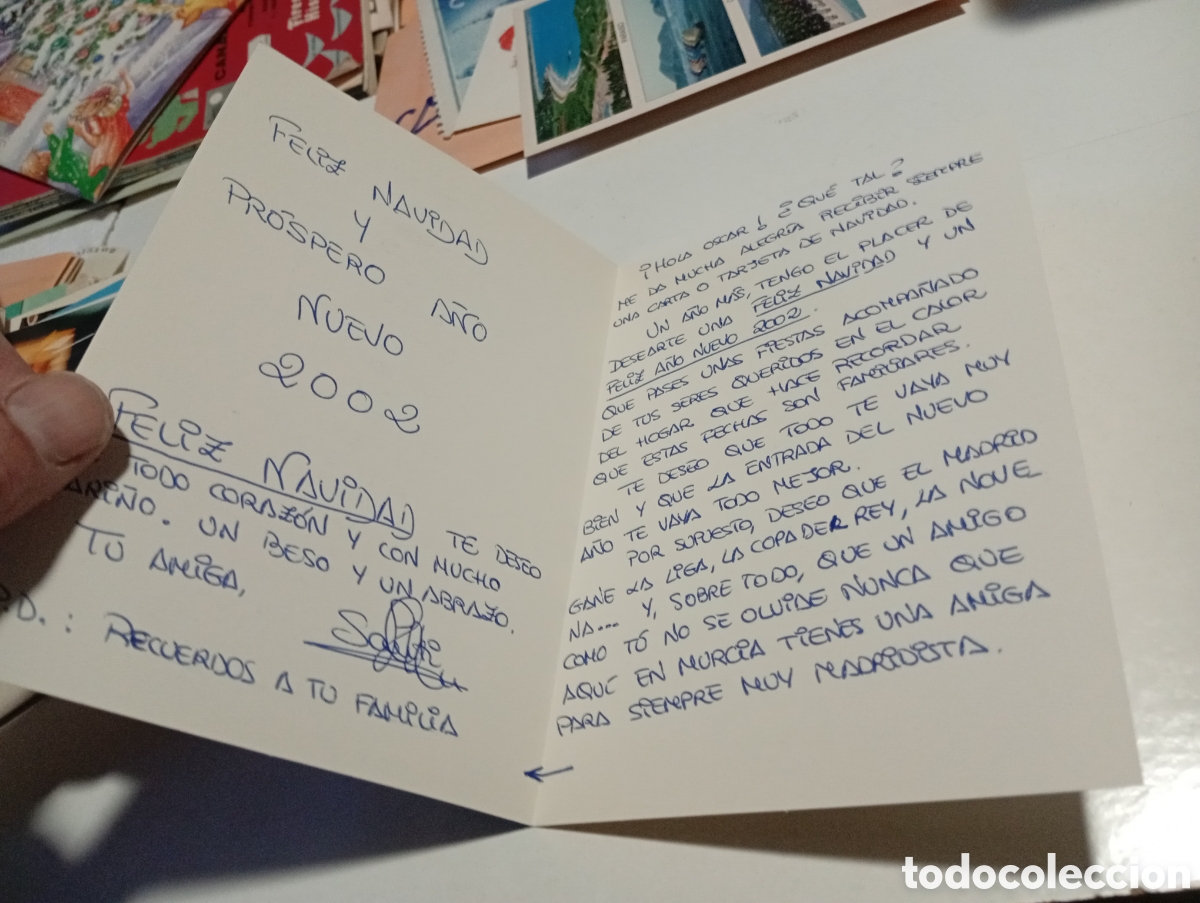 FELIZ NAVIDAD
Y
PRÓSPERO AÑO
NUEVO
2002
FELIZ NAVIDAD TE DESEO
TODO CORAZÓN Y CON MUCHO
UN BESO Y UN ABRAZO.
TU AMIGA,
D.: RECUERDOS A TU FAMILIA
¡HOLA OSCAR! ¿QUÉ TAL?
ME DA MUCHA ALEGRÍA RECIBIR SIEMPRE
UNA CARTA O TARJETA DE NAVIDAD.
UN AÑO MÁS, TENGO EL PLACER DE
DESEARTE UNA FELIZ NAVIDAD Y UN
FELIZ AÑO NUEVO 2002.
QUE PASES UNAS FIESTAS ACOMPAÑADO
DE TUS SERES QUERIDOS EN EL CALOR
DEL HOGAR QUE HACE RECORDAR
QUE ESTAS FECHAS SON FAMILIARES.
TE DESEO QUE TODO TE VAYA MUY
BIEN Y QUE LA ENTRADA DEL NUEVO
AÑO TE VAYA TODO MEJOR.
POR SUPUESTO, DESEO QUE EL MADRID
GANE LA LIGA, LA COPA DEL REY, LA NOVE
NA... Y, SOBRE TODO, QUE UN AMIGO
COMO TÚ NO SE OLVIDE NUNCA QUE
AQUÍ EN MURCIA TIENES UNA AMIGA
PARA SIEMPRE MUY MADRIDISTA.
todocoleccion